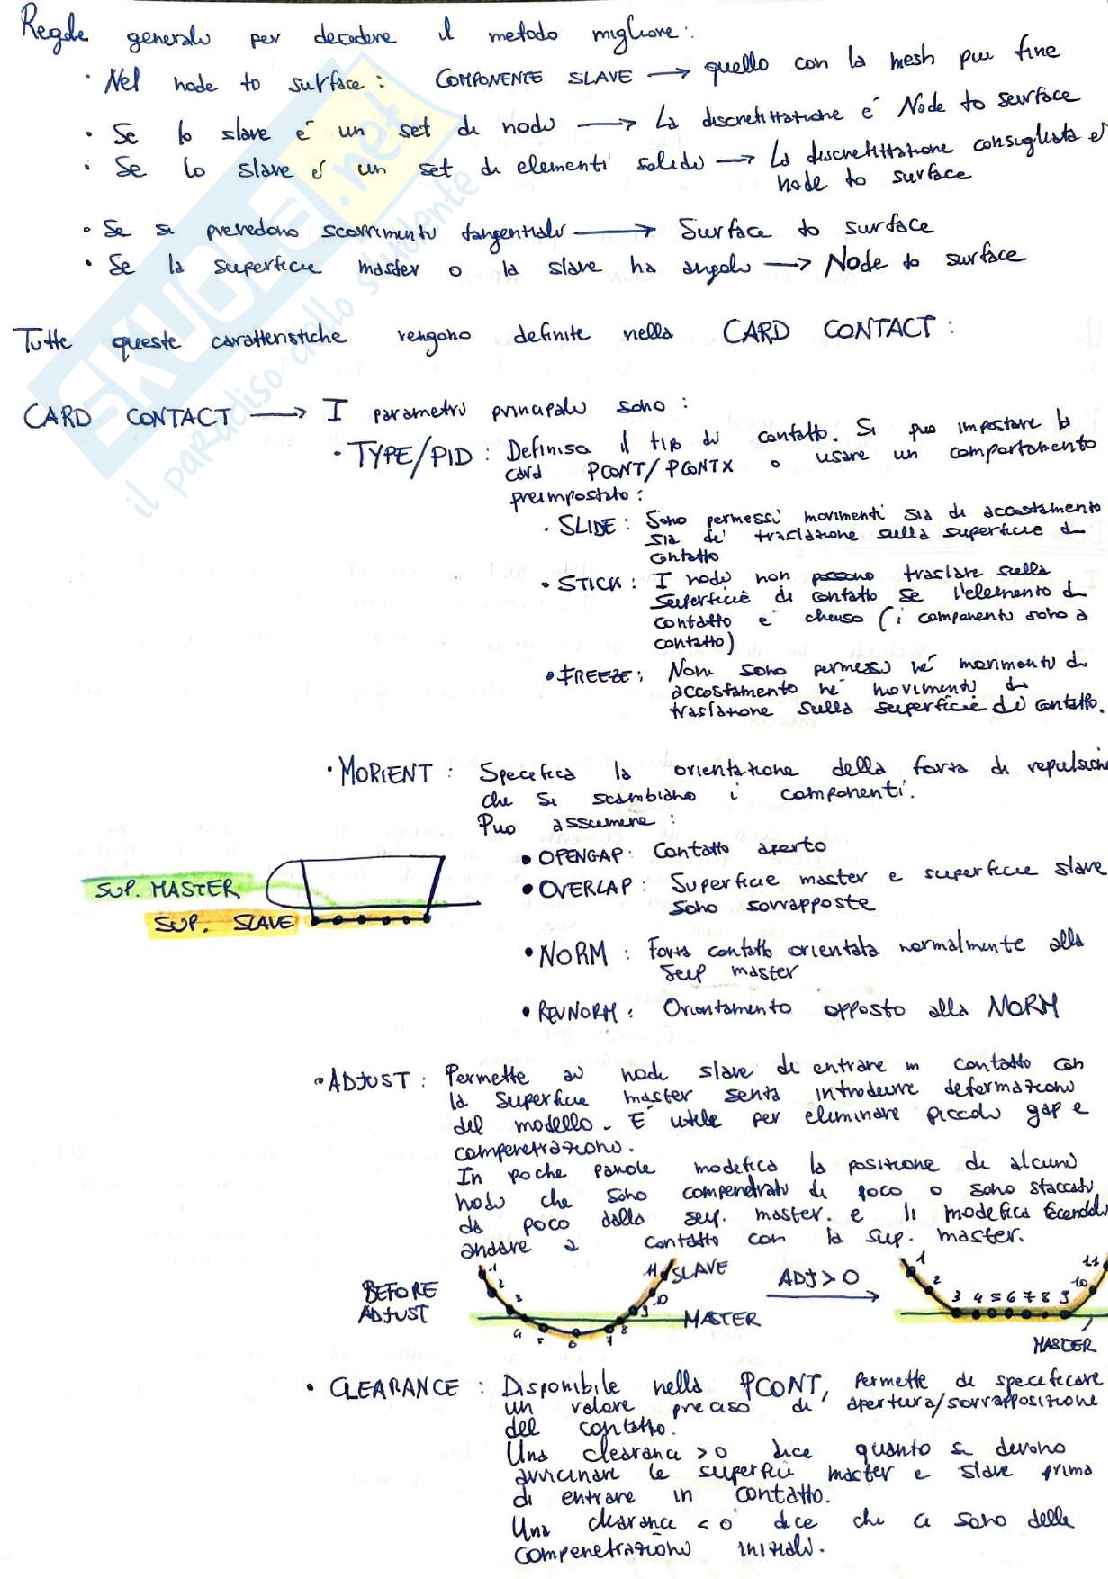 Regole generali per decidere il metodo migliore:
· Nel node to surface: COMPONENTE SLAVE → quello con la mesh piu fine
· Se lo slave é un set di nodi → La discretizzazione é Node to surface
· Se lo slave é un set di elementi solidi → La discretizzazione consigliata é
node to surface
· Se si prevedono scorrimenti tangenziali → Surface to surface
· Se la superficie master o la slave ha angoli → Node to surface
Tutte queste caratteristiche vengono definite nella CARD CONTACT:
CARD CONTACT → I parametri principali sono:
· TYPE/PID: Definisce il tipo di contatto. Si puo impostare la
card PCONT/PCONTX o usare un comportamento
preimpostato:
· SLIDE: Sono permessi movimenti sia di accostamento
sia di traslazione sulla superficie di
contatto
· STICK: I nodi non possono traslare sulla
superficie di contatto se l'elemento di
contatto é chiuso (i componenti sono a
contatto)
· FREEZE: Non sono permessi né movimenti di
accostamento né movimenti di
traslazione sulla superficie di contatto.
· MORIENT: Specifica la orientazione della forza di repulsione
che si scambiano i componenti.
Puo assumere:
• OPENGAP: Contatto aperto
• OVERLAP: Superficie master e superficie slave
sono sovrapposte
SUP. MASTER
SUP. SLAVE
• NORM: Forza contatto orientata normalmente alla
sup master
• REVNORM: Orientamento opposto alla NORM
· ADJUST: Permette ai nodi slave di entrare in contatto con
la superficie master senza introdurre deformazioni
del modello. E' utile per eliminare piccoli gap e
compenetrazioni.
In poche parole modifica la posizione di alcuni
nodi che sono compenetrati di poco o sono staccati
da poco dalla sup. master. e li modifica facendoli
andare a contatto con la sup. master.
BEFORE
ADJUST
1 2 3 4 5 6 7 8 9 10 11 SLAVE
MASTER
ADJ > 0
1 2 3 4 5 6 7 8 9 10 11
MASTER
· CLEARANCE: Disponibile nella PCONT, permette di specificare
un valore preciso di apertura/sovrapposizione
del contatto.
Una clearance > 0 dice quanto si devono
avvicinare le superfici master e slave prima
di entrare in contatto.
Una clearance < 0 dice che ci sono delle
compenetrazioni iniziali.
SKUOLA.net
il paradiso dello studente